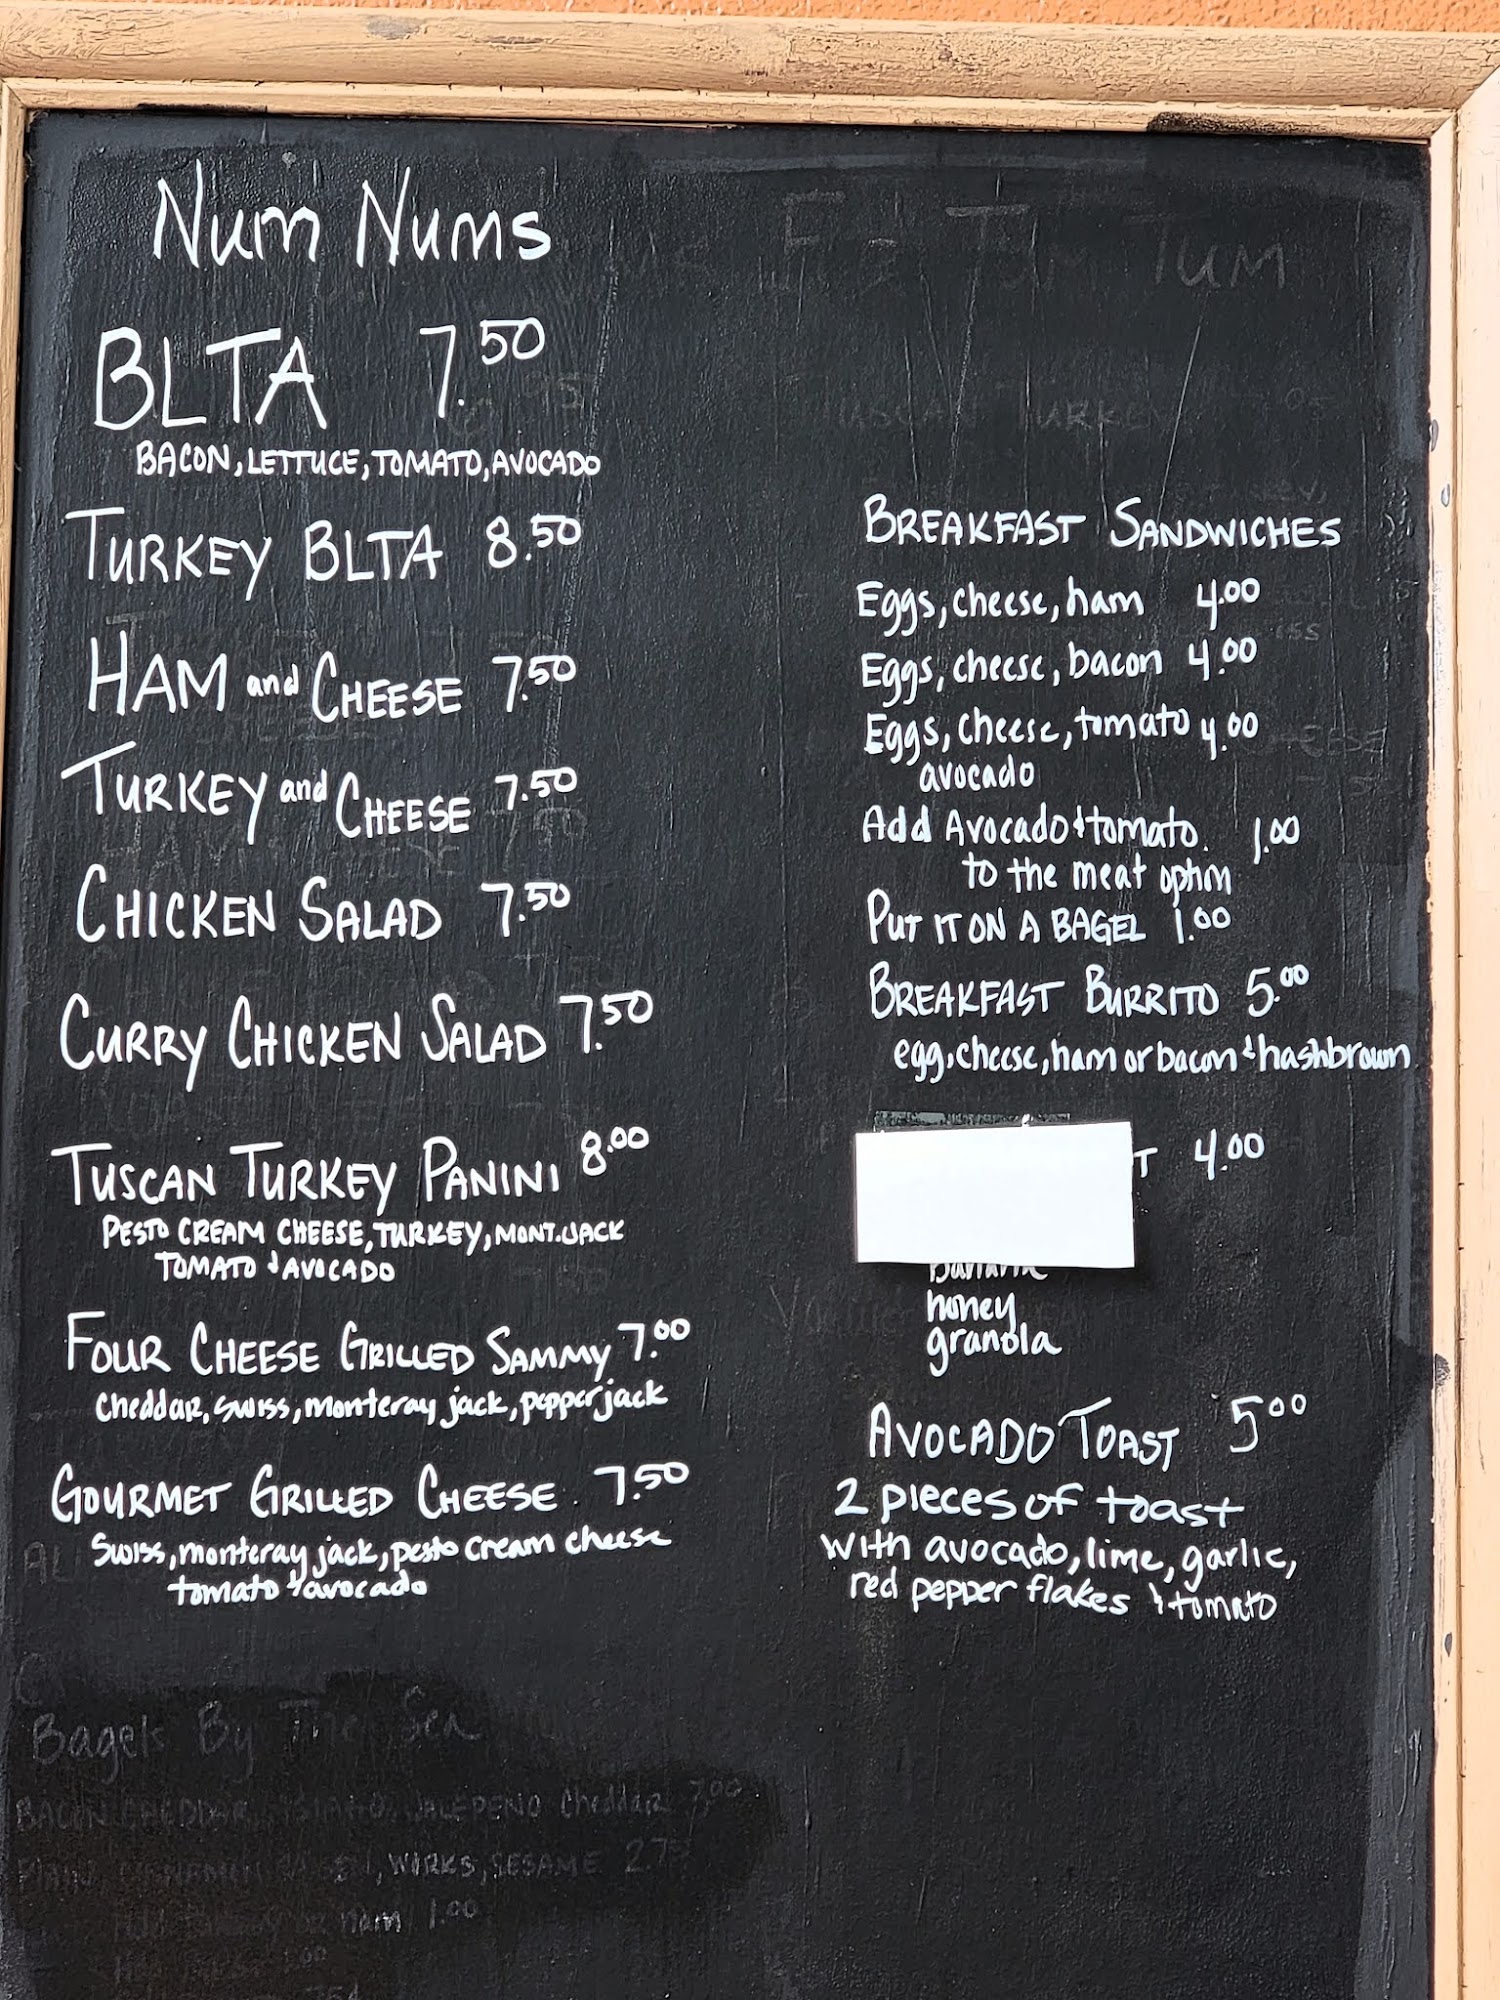 Num Nums
BLTA 7.50
BACON, LETTUCE, TOMATO, AVOCADO
TURKEY BLTA 8.50
HAM and CHEESE 7.50
TURKEY and CHEESE 7.50
CHICKEN SALAD 7.50
CURRY CHICKEN SALAD 7.50
TUSCAN TURKEY PANINI 8.00
PESTO CREAM CHEESE, TURKEY, MONT. JACK
TOMATO & AVOCADO
FOUR CHEESE GRILLED SAMMY 7.00
cheddar, swiss, monteray jack, pepper jack
GOURMET GRILLED CHEESE 7.50
Swiss, monteray jack, pesto cream cheese
tomato & avocado
Bagels By The Sea
BREAKFAST SANDWICHES
Eggs, cheese, ham 4.00
Eggs, cheese, bacon 4.00
Eggs, cheese, tomato 4.00
avocado
Add Avocado & tomato. 1.00
to the meat option
PUT IT ON A BAGEL 1.00
BREAKFAST BURRITO 5.00
egg, cheese, ham or bacon & hashbrown
T 4.00
honey
granola
AVOCADO TOAST 5.00
2 pieces of toast
with avocado, lime, garlic,
red pepper flakes & tomato